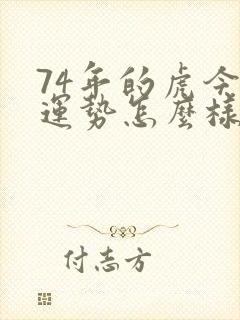 74年的虎今
運勢怎麼樣
付志方